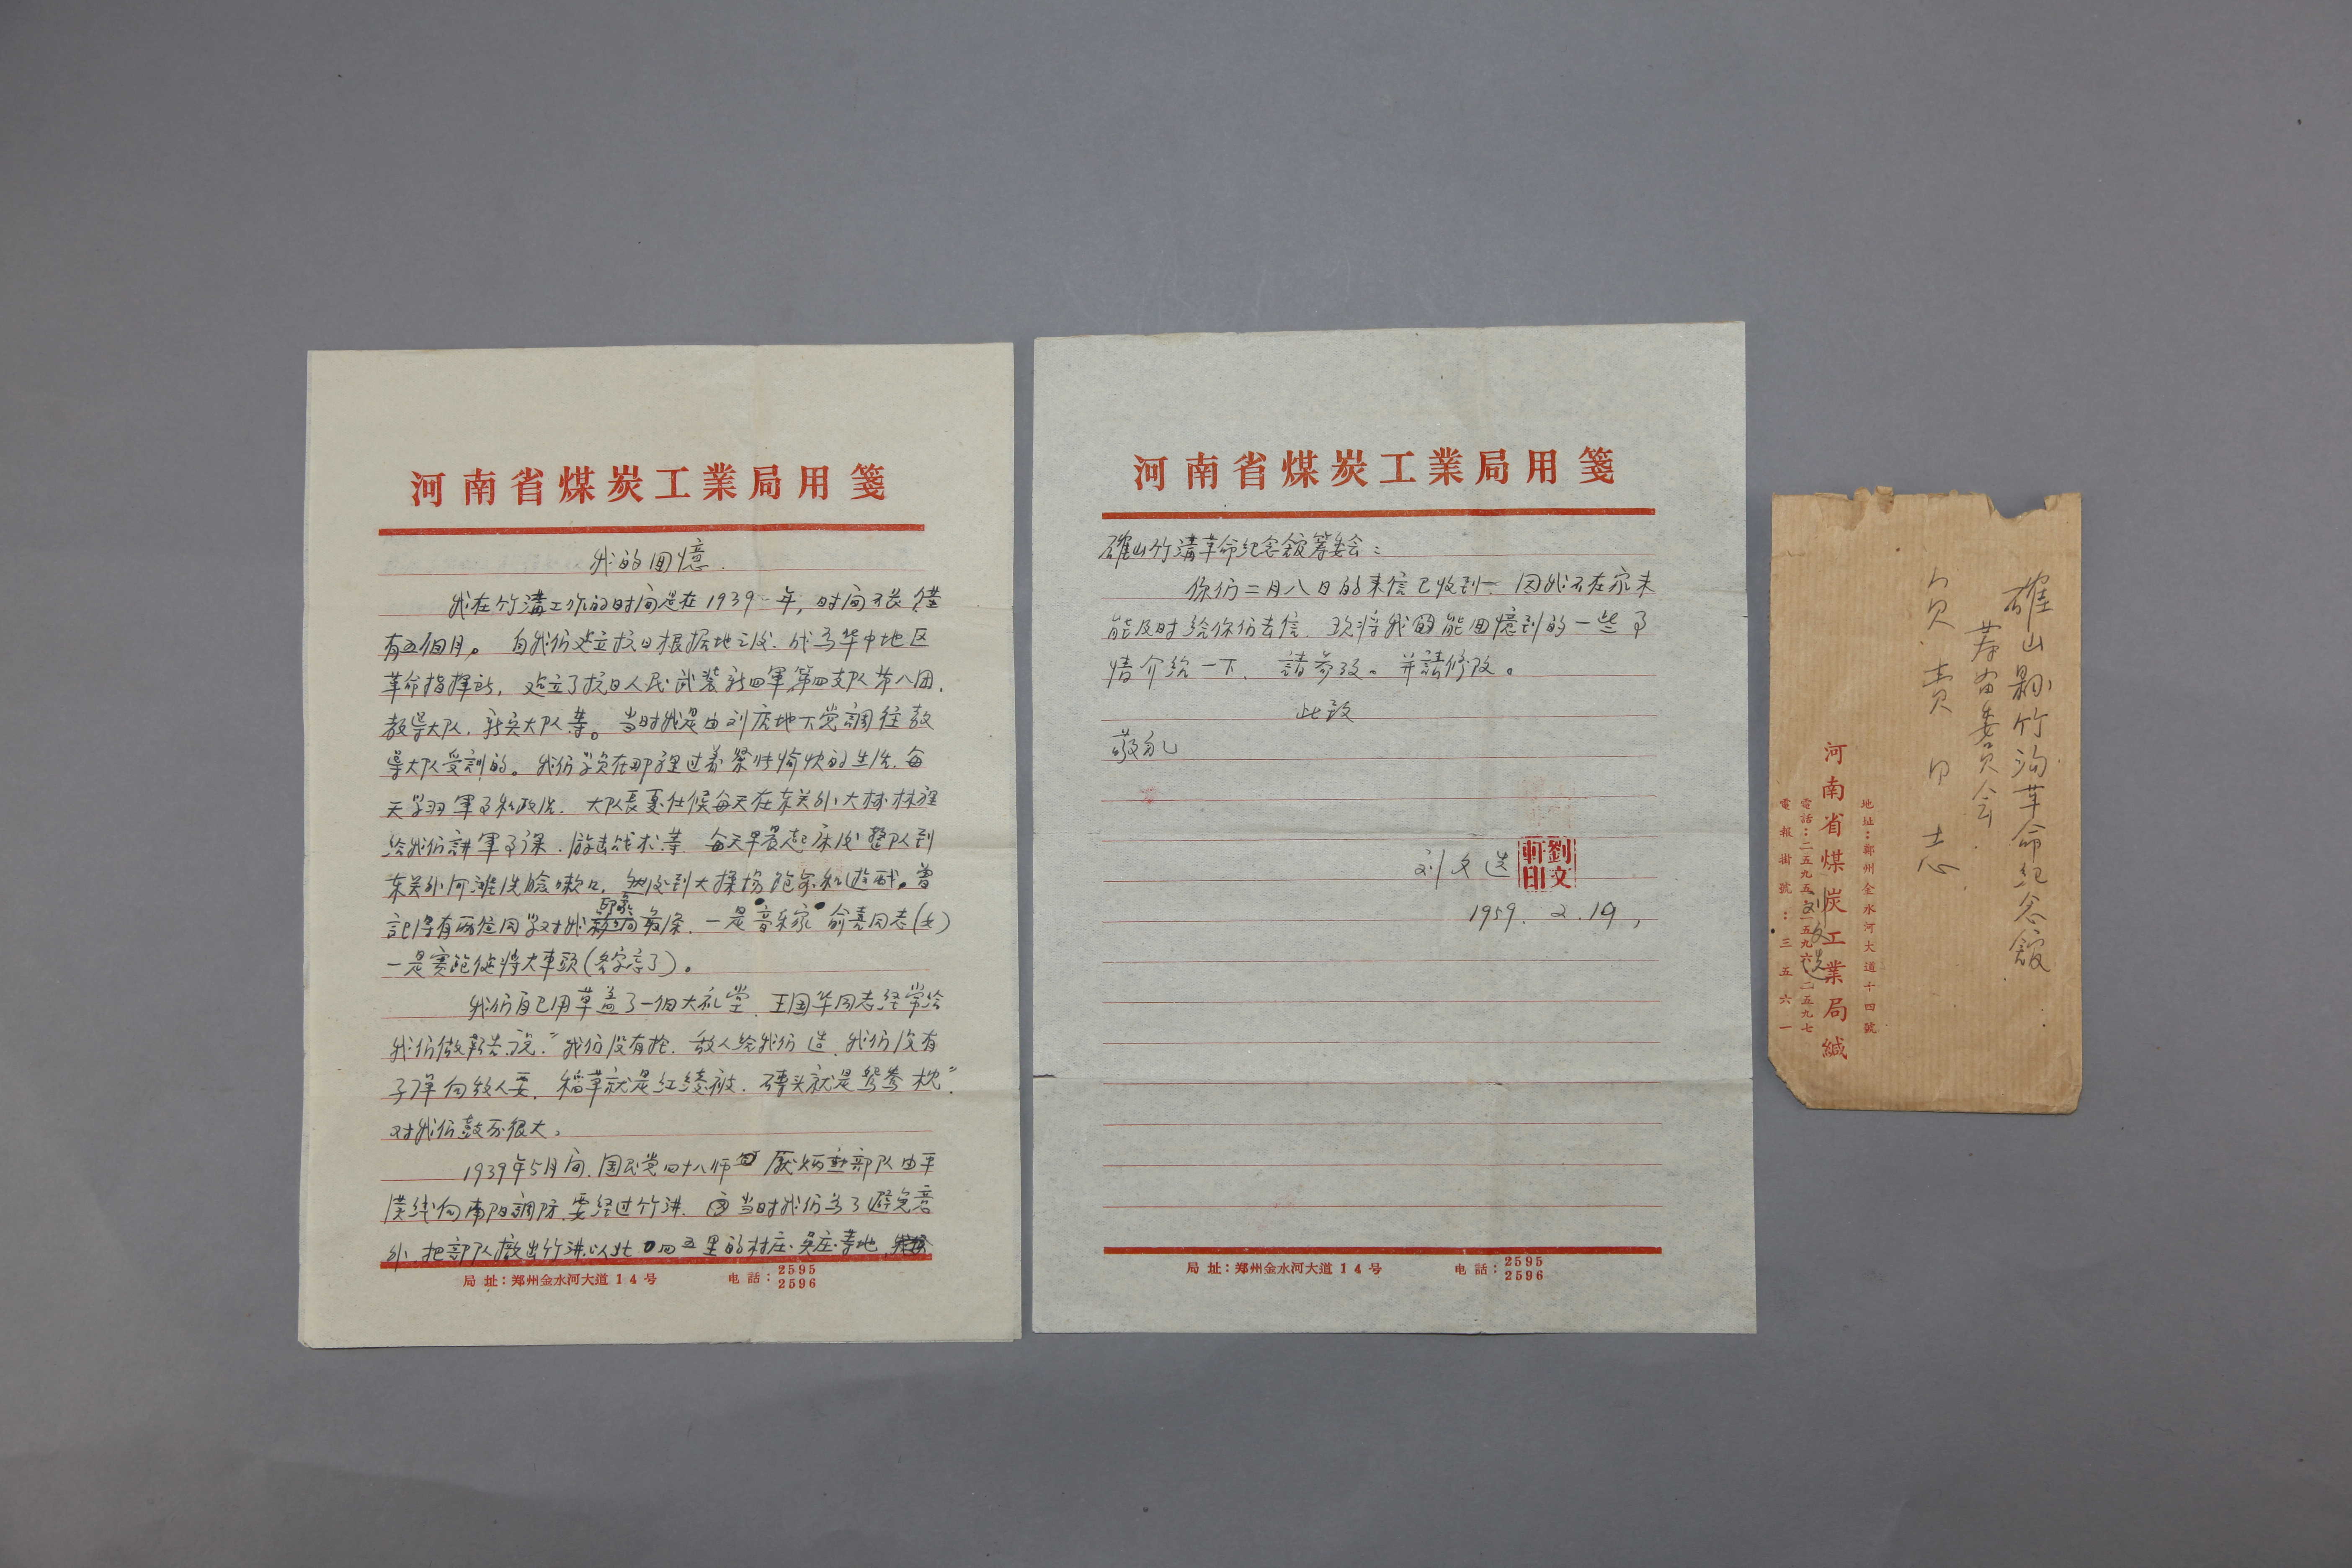 河南省煤炭工業局用箋
我的回憶.
我在竹溝工作的时间是在1939年,时间不长僅
有五個月。自我们建立抗日根据地之后.成为华中地区
革命指揮所,建立了抗日人民武装新四軍第四支队第八团.
教导大队.新兵大队等。当时我是由刘店地下党調往教
导大队受訓的。我们学员在那裡过着紧张愉快的生活.每
天学习軍事和政治.大队長夏仕候每天在东关外大树林裡
给我们講軍事课.游击战术等 每天早晨起床后整队到
东关外河滩洗脸嗽口.然后到大操場跑步和遊戏。曾
記得有两位同学对我印象最深.一是"音乐家"俞嘉同志(女)
一是赛跑健将大車頭(名字忘了)。
我们自己用草盖了一個大礼堂.王国华同志经常给
我们做報告.说:"我们没有枪.敌人给我们造.我们没有
子弹向敌人要.稻草就是紅绫被.磚头就是鸳鸯枕".
对我们鼓励很大。
1939年5月间.国民党四十八师 部队由平
漢线向南阳調防.要经过竹溝.当时我们为了避免意
外.把部队撤出竹溝以北四五里的村庄.吳庄.等地,
局址:郑州金水河大道14号 电話:2595 2596
河南省煤炭工業局用箋
確山竹溝革命纪念館筹委会:
你们二月八日的来信已收到.因我不在家未
能及时给你们去信.现将我能回憶到的一些事
情介绍一下.請参改。并請修改。
此致
敬礼
刘文选
劉文軒印
1959.2.19,
局址:郑州金水河大道14号 电話:2595 2596
確山县竹沟革命纪念館
筹备委员会
负责同志
地址:鄭州金水河大道十四號
河南省煤炭工業局緘
刘文选
電話:二五九五 二五九六 二五九七
電報掛號:三五六一